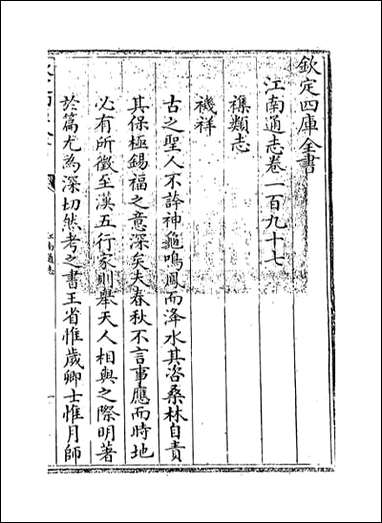 欽定四庫全書
江南通志卷一百九十七
襍類志
禨祥
古之聖人不誇神龜鳴鳳而洚水其咨桑林自責
其保極錫福之意深矣夫春秋不言事應而時地
必有所徵至漢五行家則舉天人相與之際明著
於篇尤為深切然考之書王省惟歲卿士惟月師
江南通志